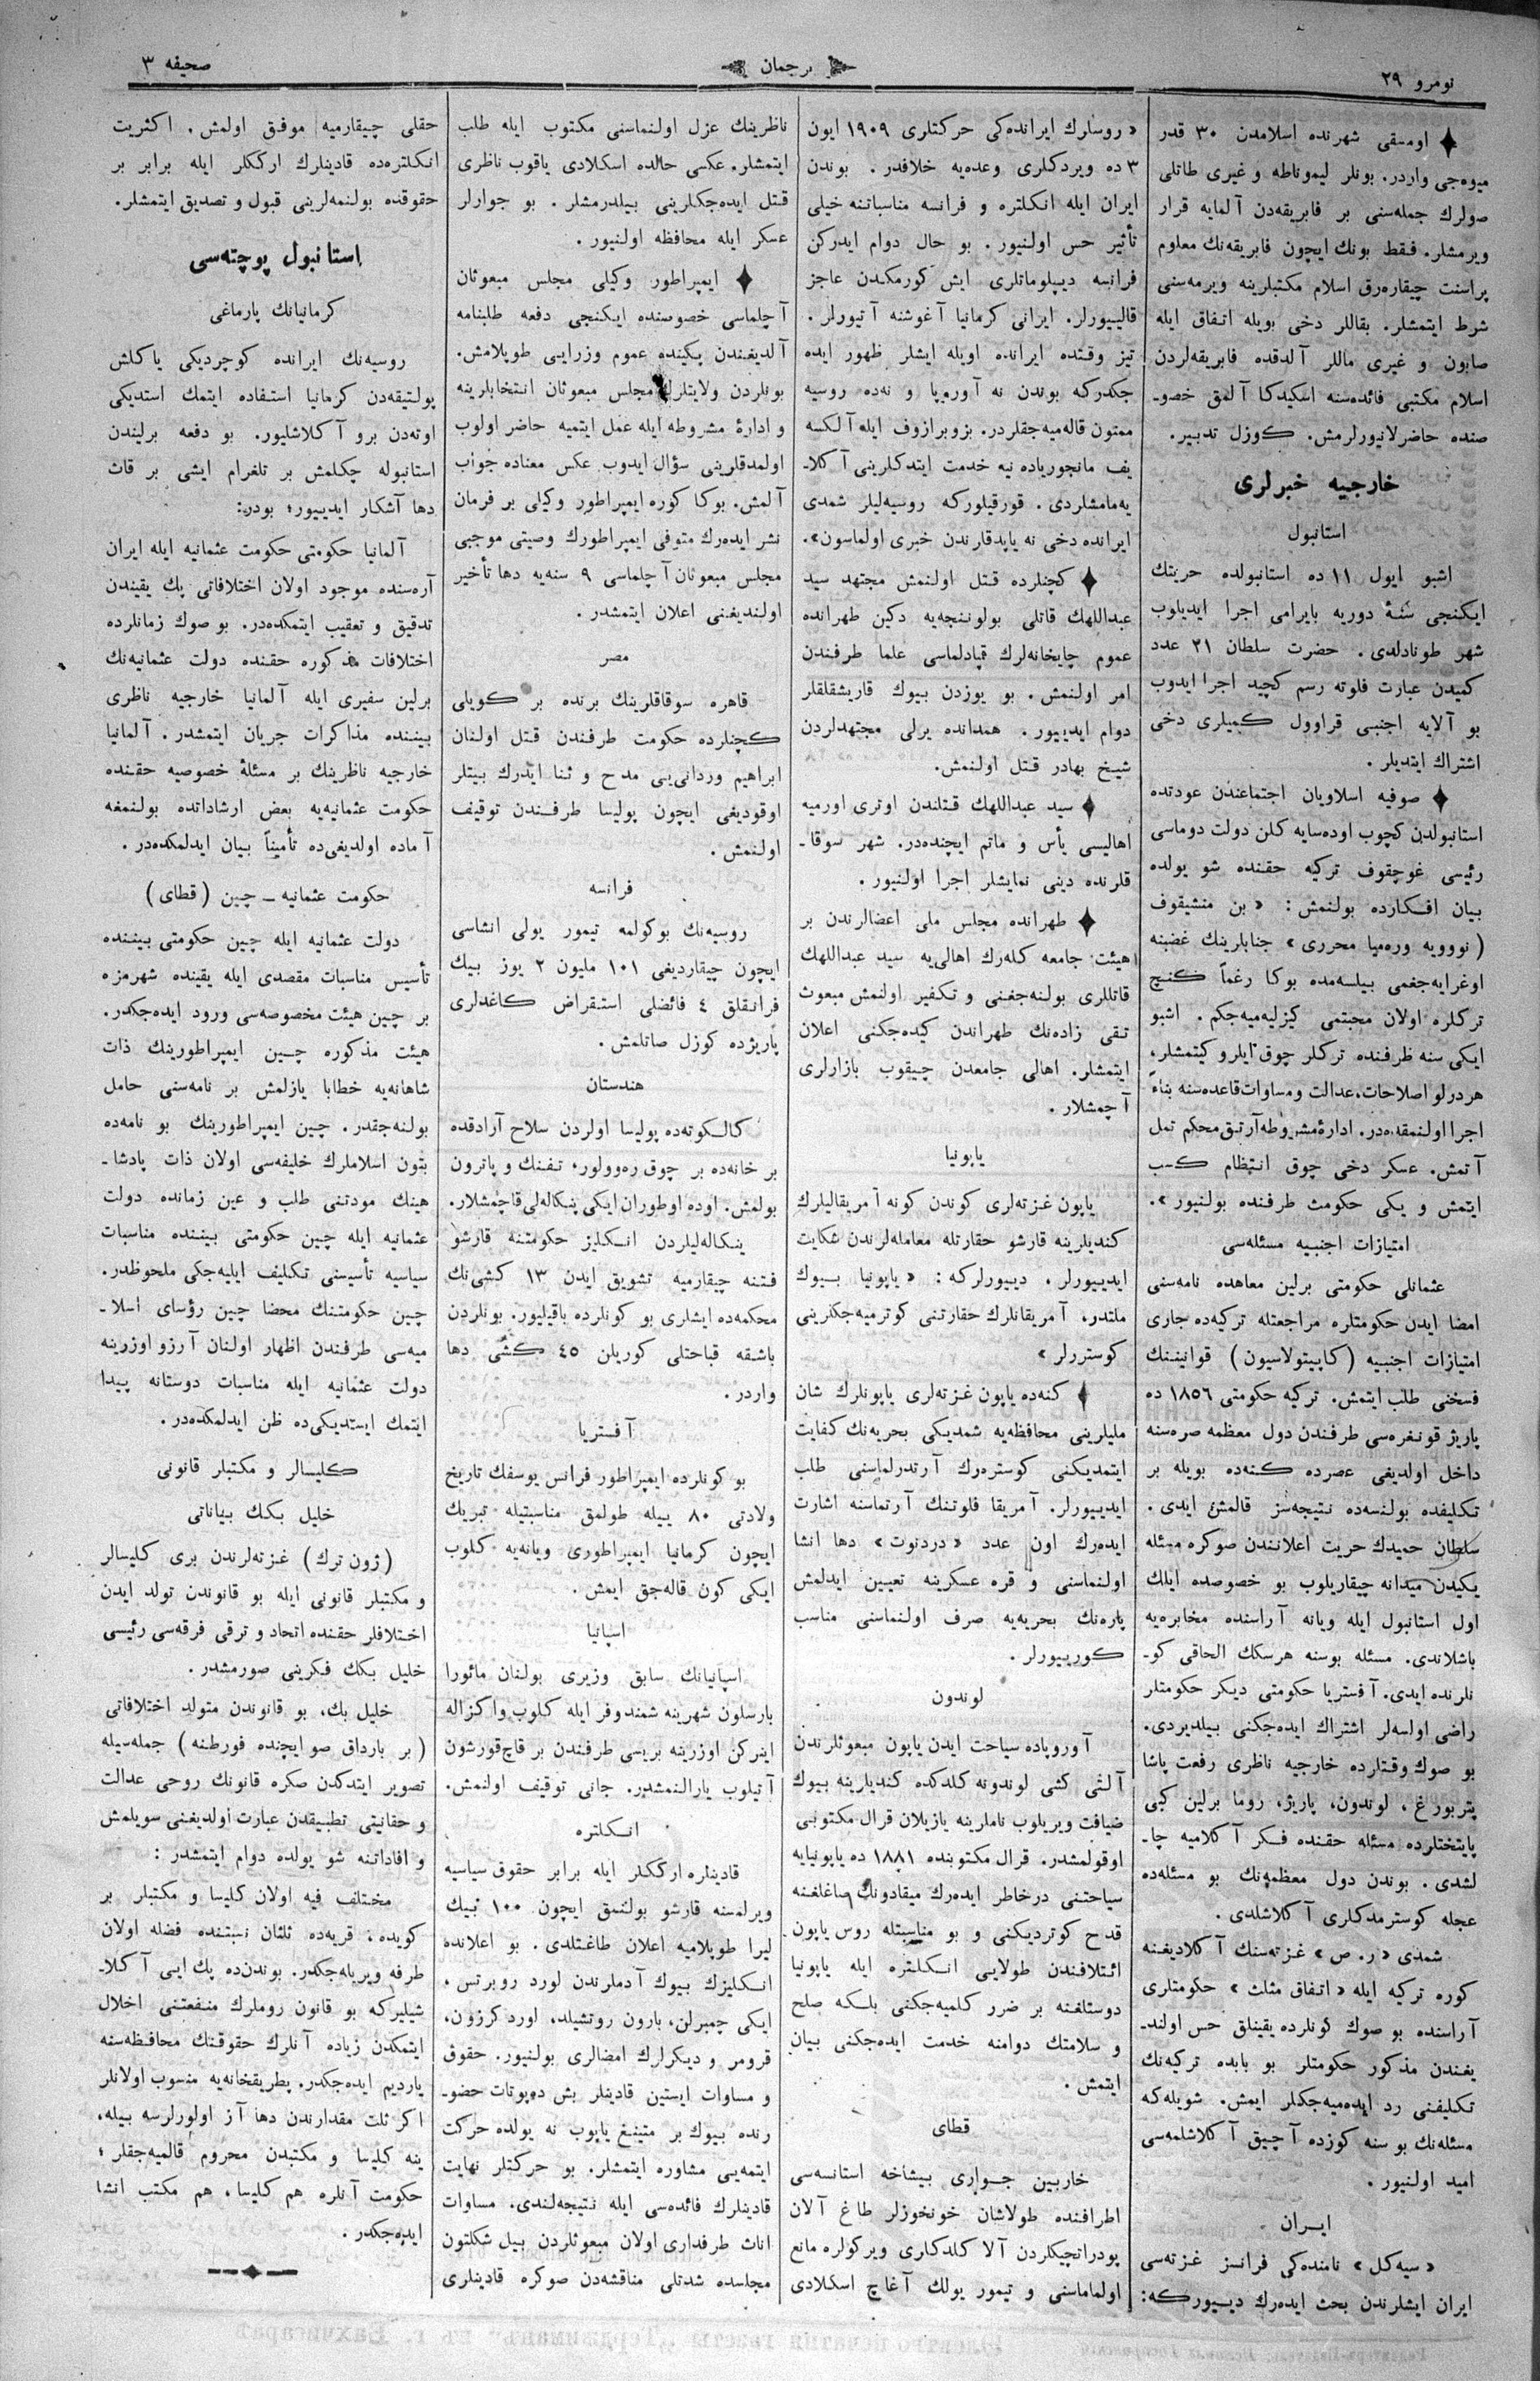 نومرو ٢٩
ترجمان
صحیفه ٣
اومسقی شهرنده اسلامدن ٣٠ قدر
میوه‌جی واردر. بونلر لیموناطه و غیری طاتلی
صولرك جمله‌سنی بر فابریقه‌دن آلمایه قرار
ویرمشلر. فقط بونك ایچون فابریقه‌نك معلوم
پراسنت چیقاره‌رق اسلام مکتبلرینه ویرمه‌سنی
شرط ایتمشلر. بقاللر دخی بویله اتفاق ایله
صابون و غیری ماللر آلدقده فابریقه‌لردن
اسلام مکتبی فائده‌سنه اسکیدکا آلمق خصو-
صنده حاضرلانیورلرمش. کوزل تدبیر.
خارجیه خبرلری
استانبول
اشبو ایول ١١ ده استانبولده حریتك
ایکنجی سنهٔ دوریه بایرامی اجرا ایدیلوب
شهر طونادلدی. حضرت سلطان ٢١ عدد
کمیدن عبارت فلوته رسم کچید اجرا ایدوب
بو آلایه اجنبی قراوول کمیلری دخی
اشتراك ایتدیلر.
صوفیه اسلاویان اجتماعندن عودتده
استانبولدن کچوب اوده‌سایه کلن دولت دوماسی
رئیسی غوچقوف ترکیه حقنده شو یولده
بیان افکارده بولنمش: «بن منشیقوف
(نوویه وره‌میا محرری» جنابلرینك غضبنه
اوغرایه‌جغمی بیلسه‌مده بوکا رغماً کنج
ترکلره اولان محبتمی کیزلیه‌میه‌جکم. اشبو
ایکی سنه ظرفنده ترکلر چوق ایلرو کیتمشلر،
هردرلو اصلاحات، عدالت و مساوات قاعده‌سنه بناءً
اجرا اولنمقده‌در. ادارهٔ مشروطه آرتق محکم تمل
آتمش. عسکر دخی چوق انتظام کسب
ایتمش و یکی حکومت طرفنده بولنیور».
امتیازات اجنبیه مسئله‌سی
عثمانلی حکومتی برلین معاهده نامه‌سنی
امضا ایدن حکومتلره مراجعتله ترکیه‌ده جاری
امتیازات اجنبیه (کاپیتولاسیون) قوانیننك
فسخنی طلب ایتمش. ترکیه حکومتی ١٨٥٦ ده
پاریژ قونغره‌سی طرفندن دول معظمه صره‌سنه
داخل اولدیغی عصرده کنه‌ده بویله بر
تکلیفده بولنسه‌ده نتیجه‌سز قالمش ایدی.
سلطان حمیدك حریت اعلانندن صوکره مسئله
یکیدن میدانه چیقاریلوب بو خصوصده ایلك
اول استانبول ایله ویانه آراسنده مخابره‌یه
باشلاندی. مسئله بوسنه هرسك الحاقی کو-
نلرنده ایدی. آفستریا حکومتی دیکر حکومتلر
راضی اولسه‌لر اشتراك ایده‌جکنی بیلدیردی.
بو صوك وقتلرده خارجیه ناظری رفعت پاشا
پتربورغ، لوندون، پاریژ، روما برلین کبی
پایتختلرده مسئله حقنده فکر آکلامیه چا-
لشدی. بوندن دول معظمه‌نك بو مسئله‌ده
عجله کوسترمدکلری آکلاشلدی.
شمدی «ر. ص» غزته‌سنك آکلادیغنه
کوره ترکیه ایله «اتفاق مثلث» حکومتلری
آراسنده بو صوك کونلرده یقینلق حس اولند-
یغندن مذکور حکومتلر بو بابده ترکیه‌نك
تکلیفنی رد ایده‌میه‌جکلر ایمش. شویله‌که
مسئله‌نك بو سنه کوزده آچیق آکلاشلمه‌سی
امید اولنیور.
ایران
«سیه‌کل» نامنده‌کی فرانسز غزته‌سی
ایران ایشلرندن بحث ایده‌رك دییورکه:
«روسلرك ایرانده‌کی حرکتلری ١٩٠٩ ایون
٣ ده ویردکلری وعده‌یه خلافدر. بوندن
ایران ایله انکلتره و فرانسه مناسباتنه خیلی
تأثیر حس اولنیور. بو حال دوام ایدرکن
فرانسه دیپلوماتلری ایش کورمکدن عاجز
قالییورلر. ایرانی کرمانیا آغوشنه آتیورلر.
تیز وقتده ایرانده اویله ایشلر ظهور ایده
جکدرکه بوندن نه آوروپا و نه‌ده روسیه
ممنون قاله‌میه‌جقلردر. بزوبرازوف ایله آلکسه
یف مانجوریاده نیه خدمت ایتدکلرینی آکلا-
یه‌مامشلردی. قورقیلورکه روسیه‌لیلر شمدی
ایرانده دخی نه یاپدقلرندن خبری اولماسون».
کچنلرده قتل اولنمش مجتهد سید
عبداللهك قاتلی بولوننجه‌یه دکین طهرانده
عموم چایخانه‌لرك قپادلماسی علما طرفندن
امر اولنمش. بو یوزدن بیوك قاریشقلقلر
دوام ایدییور. همدانده یرلی مجتهدلردن
شیخ بهادر قتل اولنمش.
سید عبداللهك قتلندن اوتری اورمیه
اهالیسی یأس و ماتم ایچنده‌در. شهر سوقا-
قلرنده دینی نمایشلر اجرا اولنیور.
طهرانده مجلس ملی اعضالرندن بر
هیئت جامعه کله‌رك اهالی‌یه سید عبداللهك
قاتللری بولنه‌جغنی و تکفیر اولنمش مبعوث
تقی زاده‌نك طهراندن کیده‌جکنی اعلان
ایتمشلر. اهالی جامعدن چیقوب بازارلری
آچمشلار.
یاپونیا
یاپون غزته‌لری کوندن کونه آمریقالیلرك
کندیلرینه قارشو حقارتله معامله‌لرندن شکایت
ایدییورلر. دییورلرکه: «یاپونیا بیوك
ملتدر، آمریقانلرك حقارتنی کوترمیه‌جکنرینی
کوستررلر»
کنه‌ده یاپون غزته‌لری یاپونلرك شان
ملیلرینی محافظه‌یه شمدیکی بحریه‌نك کفایت
ایتمدیکنی کوستره‌رك آرتدرلماسنی طلب
ایدییورلر. آمریقا فلوتنك آرتماسنه اشارت
ایده‌رك اون عدد «دردنوت» دها انشا
اولنماسنی و قره عسکرینه تعیین ایدلمش
پاره‌نك بحریه‌یه صرف اولنماسنی مناسب
کورییورلر.
لوندون
آوروپاده سیاحت ایدن یاپون مبعوثلرندن
آلتی کشی لوندونه کلدکده کندیلرینه بیوك
ضیافت ویریلوب ناملرینه یازیلان قرال مکتوبی
اوقولمشدر. قرال مکتوبنده ١٨٨١ ده یاپونیایه
سیاحتنی درخاطر ایده‌رك میقادونك صاغلغنه
قدح کوتردیکنی و بو مناسبتله روس یاپون
ائتلافندن طولایی انکلتره ایله یاپونیا
دوستلغنه بر ضرر کلمیه‌جکنی بلکه صلح
و سلامتك دوامنه خدمت ایده‌جکنی بیان
ایتمش.
قطای
خاربین جواری بیشاخه استانسه‌سی
اطرافنده طولاشان خونخوزلر طاغ آلان
پودراتچیکلردن آلا کلدکاری ویرکولره مانع
اولماماسنی و تیمور یولك آغاج اسکلادی
ناظرینك عزل اولنماسنی مکتوب ایله طلب
ایتمشلر. عکسی حالده اسکلادی یاقوب ناظری
قتل ایده‌جکلرینی بیلدرمشلر. بو جوارلر
عسکر ایله محافظه اولنیور.
ایمپراطور وکیلی مجلس مبعوثان
آچلماسی خصوصنده ایکنجی دفعه طلبنامه
آلدیغندن پکینده عموم وزرایی طوپلامش.
بونلردن ولایتلرك مجلس مبعوثان انتخابلرینه
و ادارهٔ مشروطه ایله عمل ایتمیه حاضر اولوب
اولمدقلرینی سؤال ایدوب عکس معناده جواب
آلمش. بوکا کوره ایمپراطور وکیلی بر فرمان
نشر ایده‌رك متوفی ایمپراطورك وصیتی موجبی
مجلس مبعوثان آچلماسی ٩ سنه‌یه دها تأخیر
اولندیغنی اعلان ایتمشدر.
مصر
قاهره سوقاقلرینك برنده بر کویلی
کچنلرده حکومت طرفندن قتل اولنان
ابراهیم وردانی‌یی مدح و ثنا ایدرك بیتلر
اوقودیغی ایچون پولیسا طرفندن توقیف
اولنمش.
فرانسه
روسیه‌نك بوکولمه تیمور یولی انشاسی
ایچون چیقاردیغی ١٠١ ملیون ٢ یوز بیك
فرانقلق ٤ فائضلی استقراض کاغدلری
پاریژده کوزل صاتلمش.
هندستان
کالکوته‌ده پولیسا اولردن سلاح آرادقده
بر خانه‌ده بر چوق ره‌وولور، تفنك و پاترون
بولمش. اوده اوطوران ایکی پنکاله‌لی قاچمشلار.
پنکاله‌لیلردن انکلیز حکومتنه قارشو
فتنه چیقارمیه تشویق ایدن ١٣ کشی‌نك
محکمه‌ده ایشلری بو کونلرده باقیلیور. بونلردن
باشقه قباحتلی کوریلن ٤٥ کشی دها
واردر.
آفستریا
بو کونلرده ایمپراطور فرانس یوسفك تاریخ
ولادتی ٨٠ ییله طولمق مناسبتیله تبریك
ایچون کرمانیا ایمپراطوری ویانه‌یه کلوب
ایکی کون قاله‌جق ایمش.
اسپانیا
اسپانیانك سابق وزیری بولنان مائورا
بارسلون شهرینه شمندوفر ایله کلوب واکزاله
اینرکن اوزرینه بریسی طرفندن بر قاچ قورشون
آتیلوب یارالنمشدر. جانی توقیف اولنمش.
انکلتره
قادینلره ارککلر ایله برابر حقوق سیاسیه
ویرلمسنه قارشو بولنمق ایچون ١٠٠ بیك
لیرا طوپلامیه اعلان طاغتلدی. بو اعلانده
انکلیزك بیوك آدملرندن لورد روبرتس،
ایکی چمبرلن، بارون روتشیلد، لورد کرزون،
قرومر و دیکرلرك امضالری بولنیور. حقوق
و مساوات ایستین قادینلر بش ده‌پوتات حضو-
رنده بیوك بر متینغ یاپوب نه یولده حرکت
ایتمه‌یی مشاوره ایتمشلر. بو حرکتلر نهایت
قادینلرك فائده‌سی ایله نتیجه‌لندی. مساوات
اناث طرفداری اولان مبعوثلردن بیل شکلتون
مجلسده شدتلی مناقشه‌دن صوکره قادینلری
حقلی چیقارمیه موفق اولمش. اکثریت
انکلتره‌ده قادینلرك ارککلر ایله برابر بر
حقوقده بولنمه‌لرینی قبول و تصدیق ایتمشلر.
استانبول پوچته‌سی
کرمانیانك پارماغی
روسیه‌نك ایرانده کوچردیکی یاکلش
پولتیقه‌دن کرمانیا استفاده ایتمك استدیکی
اوته‌دن برو آکلاشلیور. بو دفعه برلیندن
استانبوله چکلمش بر تلغرام ایشی بر قات
دها آشکار ایدییور؛ بودر:
آلمانیا حکومتی حکومت عثمانیه ایله ایران
آره‌سنده موجود اولان اختلافاتی پك یقیندن
تدقیق و تعقیب ایتمکده‌در. بو صوك زمانلرده
اختلافات مذکوره حقنده دولت عثمانیه‌نك
برلین سفیری ایله آلمانیا خارجیه ناظری
بیننده مذاکرات جریان ایتمشدر. آلمانیا
خارجیه ناظرینك بر مسئلهٔ خصوصیه حقنده
حکومت عثمانیه‌یه بعض ارشاداتده بولنمغه
آماده اولدیغی‌ده تأمیناً بیان ایدلمکده‌در.
حکومت عثمانیه ــ چین (قطای)
دولت عثمانیه ایله چین حکومتی بیننده
تأسیس مناسبات مقصدی ایله یقینده شهرمزه
بر چین هیئت مخصوصه‌سی ورود ایده‌جکدر.
هیئت مذکوره چین ایمپراطورینك ذات
شاهانه‌یه خطابا یازلمش بر نامه‌سنی حامل
بولنه‌جقدر. چین ایمپراطورینك بو نامه‌ده
بتون اسلاملرك خلیفه‌سی اولان ذات پادشا-
هینك مودتنی طلب و عین زمانده دولت
عثمانیه ایله چین حکومتی بیننده مناسبات
سیاسیه تأسیسنی تکلیف ایلیه‌جکی ملحوظدر.
چین حکومتنك محضا چین رؤسای اسلا-
میه‌سی طرفندن اظهار اولنان آرزو اوزرینه
دولت عثمانیه ایله مناسبات دوستانه پیدا
ایتمك ایستدیکی‌ده ظن ایدلمکده‌در.
کلیسالر و مکتبلر قانونی
خلیل بکك بیاناتی
(ژون ترك) غزته‌لرندن بری کلیسالر
و مکتبلر قانونی ایله بو قانوندن تولد ایدن
اختلافلر حقنده اتحاد و ترقی فرقه‌سی رئیسی
خلیل بکك فکرینی صورمشدر.
خلیل بك، بو قانوندن متولد اختلافاتی
(بر بارداق صو ایچنده فورطنه) جمله‌سیله
تصویر ایتدکدن صکره قانونك روحی عدالت
و حقانیتی تطبیقدن عبارت اولدیغنی سویلمش
و افاداتنه شو یولده دوام ایتمشدر:
مختلف فیه اولان کلیسا و مکتبلر بر
کویده، قریه‌ده ثلثان نسبتنده فضله اولان
طرفه ویریله‌جکدر. بوندن‌ده پك ایی آکلا-
شیلیرکه بو قانون روملرك منفعتنی اخلال
ایتمکدن زیاده آنلرك حقوقنك محافظه‌سنه
یاردیم ایده‌جکدر. پطریقخانه‌یه منسوب اولانلر
اکر ثلث مقدارندن دها آز اولورلرسه بیله،
ینه کلیسا و مکتبدن محروم قالمیه‌جقلر؛
حکومت آنلره هم کلیسا، هم مکتب انشا
ایده‌جکدر.